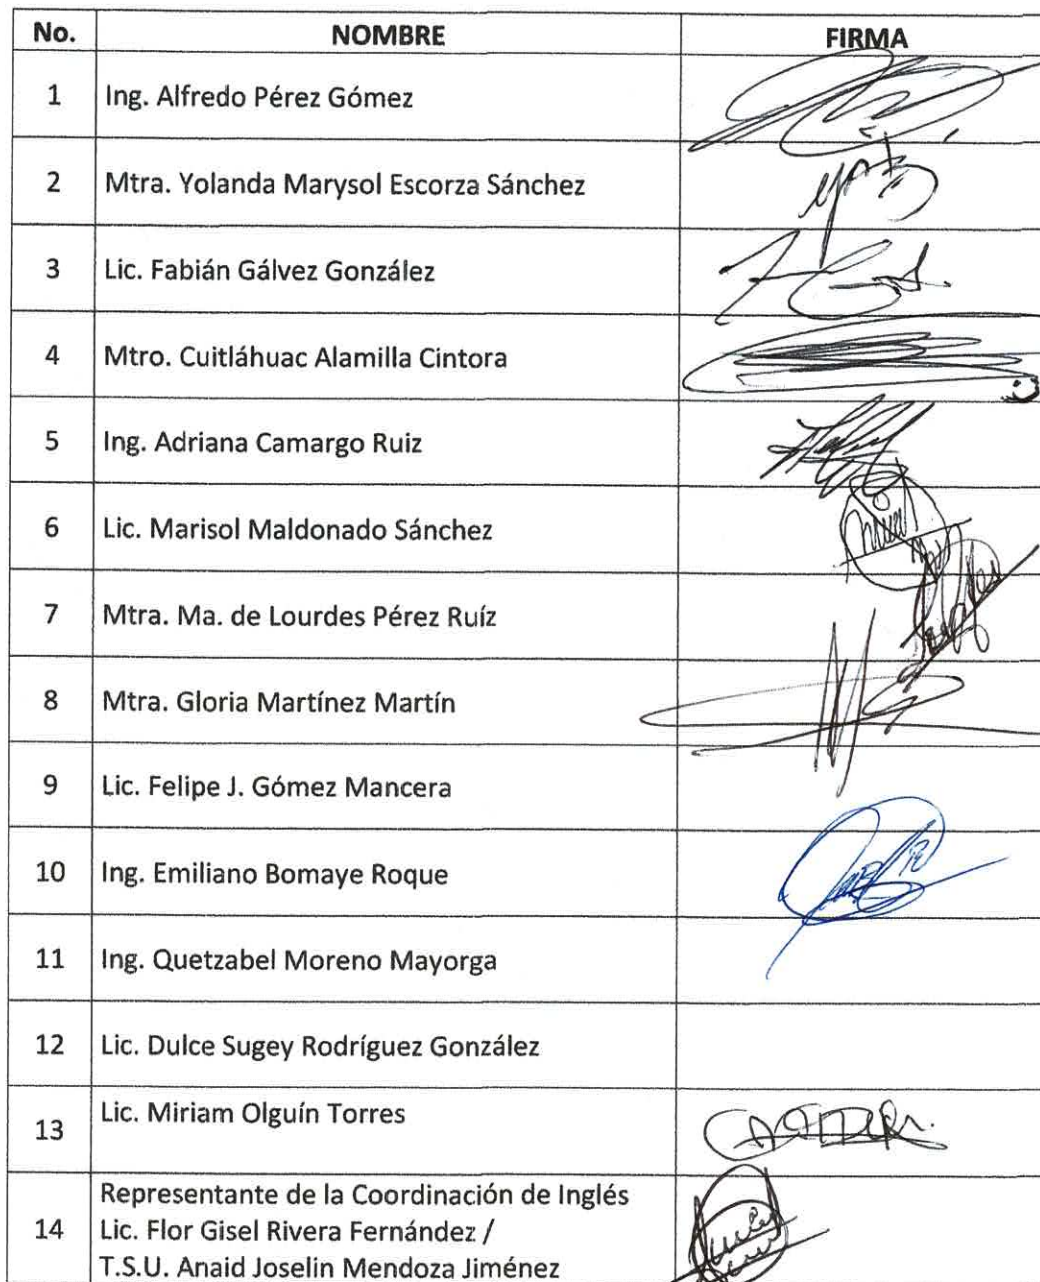 No. NOMBRE FIRMA
1 Ing. Alfredo Pérez Gómez
2 Mtra. Yolanda Marysol Escorza Sánchez
3 Lic. Fabián Gálvez González
4 Mtro. Cuitláhuac Alamilla Cintora
5 Ing. Adriana Camargo Ruiz
6 Lic. Marisol Maldonado Sánchez
7 Mtra. Ma. de Lourdes Pérez Ruíz
8 Mtra. Gloria Martínez Martín
9 Lic. Felipe J. Gómez Mancera
10 Ing. Emiliano Bomaye Roque
11 Ing. Quetzabel Moreno Mayorga
12 Lic. Dulce Sugey Rodríguez González
13 Lic. Miriam Olguín Torres
14 Representante de la Coordinación de Inglés
Lic. Flor Gisel Rivera Fernández /
T.S.U. Anaid Joselin Mendoza Jiménez